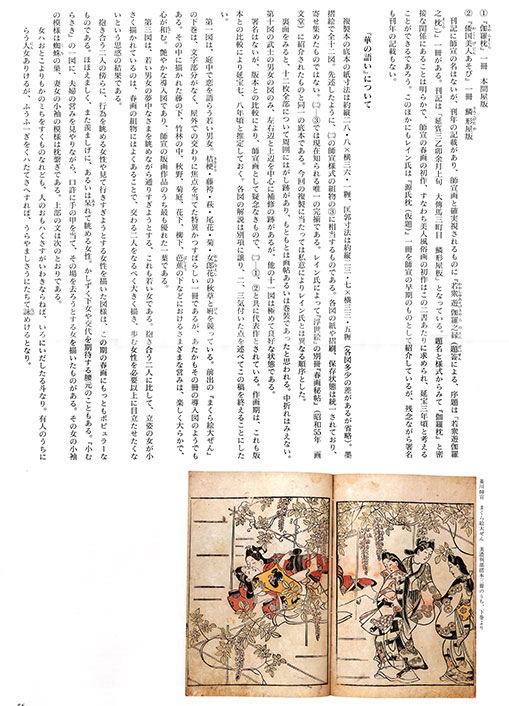 ①『伽羅枕』 一冊 本問屋版
②『倭国美人あそび』一冊 鱗形屋版
刊記に師宣の名はないが、刊年の記載があり、師宣画と確実視されるものに『若衆遊伽羅之縁』
之枕』一冊がある。刊記は「延宝三乙卯余月上旬 大傳馬三町目 鱗形屋板」となっている。題名と様式からみて『伽羅枕』と密
接な関係にあることは明らかで、師宣の春画の初作、すなわち美人風俗画の初作はこの二書あたりに求められ、延宝三年頃と考える
ことができるであろう。このほかにもレイン氏は『源氏枕（仮題）』一冊を師宣の早期のものとして紹介しているが、残念ながら署名
も刊年の記載もない。
「華の語い」について
複製本の底本の紙寸法は約縦二八・八×横三六・一糎、匡郭寸法は約縦二三・七×横三三・五糎（各図多少の差があるが省略）。墨
摺絵で全十二図、先述したように㈡の師宣様式の組物の③に相当するものである。各図の紙や摺刷、保存状態は統一されており、
寄せ集めたものではない。㈡③では現在知られる唯一の完揃である。レイン氏によって『浮世絵』の別冊『春画秘帖』（昭和55年 画
文堂）に紹介されたものと同一の底本である。今回の複製に当たっては私意によりレイン氏とは異なる順序とした。
裏面をみると、十二枚全部について周囲にはがし跡があり、もともとは画帖あるいは巻装であったと思われる。中折れはみえない。
第十図の武士の男女の図のみ、左右辺と上辺を中心に補修の跡があるが、他の十一図は極めて良好な状態である。
署名はないが、版本との比較により、師宣画として疑念なきもので、㈡①、②と共に代表作とされている。作画期は、これも版
本との比較により延宝七、八年頃と推定しておく。各図の解説は別項に譲り、二、三気付いた点を述べてこの稿を終えることにした
い。
第一図は、庭中で恋を語らう若い男女。桔梗・藤袴・萩・尾花・菊・女郎花の秋草と妍を競っている。前出の『まくら絵大ぜん』
の下巻は、文字部分がなく、屋外での交わりに焦点を当てた特異かつすばらしい一冊であるが、あたかもその冊の導入図のようでも
ある。その中に描かれた藤の下、竹林の中、秋野、菊庭、花下、柳下、芭蕉の下などにおけるさまざまな営みは、楽しく大らかで、
心が和む。艶やかな導入図であり、師宣の版画作品のうち最も優れた一葉である。
第三図は、若い男女の夢中なさまを眺めながら通りすぎようとする、これも若い女である。抱き合う二人に比して、立姿の女が小
さく描かれているのは、春画の組物にはよくあることで、交わる二人をなるべく大きく描き、歩む女性を必要以上に目立たせたくな
いという思惑の結果である。
抱き合う二人の傍らに、行為を眺める女性や見て行きすぎようとする女性を描いた図様は、この期の春画にもっともポピュラーな
ものである。ほほえましく、また羨ましげに、あるいは呆れて眺める女性。かしずく下女や交代を期待する腰元のこともある。『小む
らさき』の一図に、夫婦の営みを見やりながら、口許に手の甲を当て、その場を去ろうとする女を描いたものがある。その女の小袖
の模様は蜘蛛の巣、妻女の小袖の模様は枕繋ぎである。上部の文は次のとおりである。
菱川師宣 まくら絵大ぜん 墨譜判墨摺本三冊のうち、下巻より